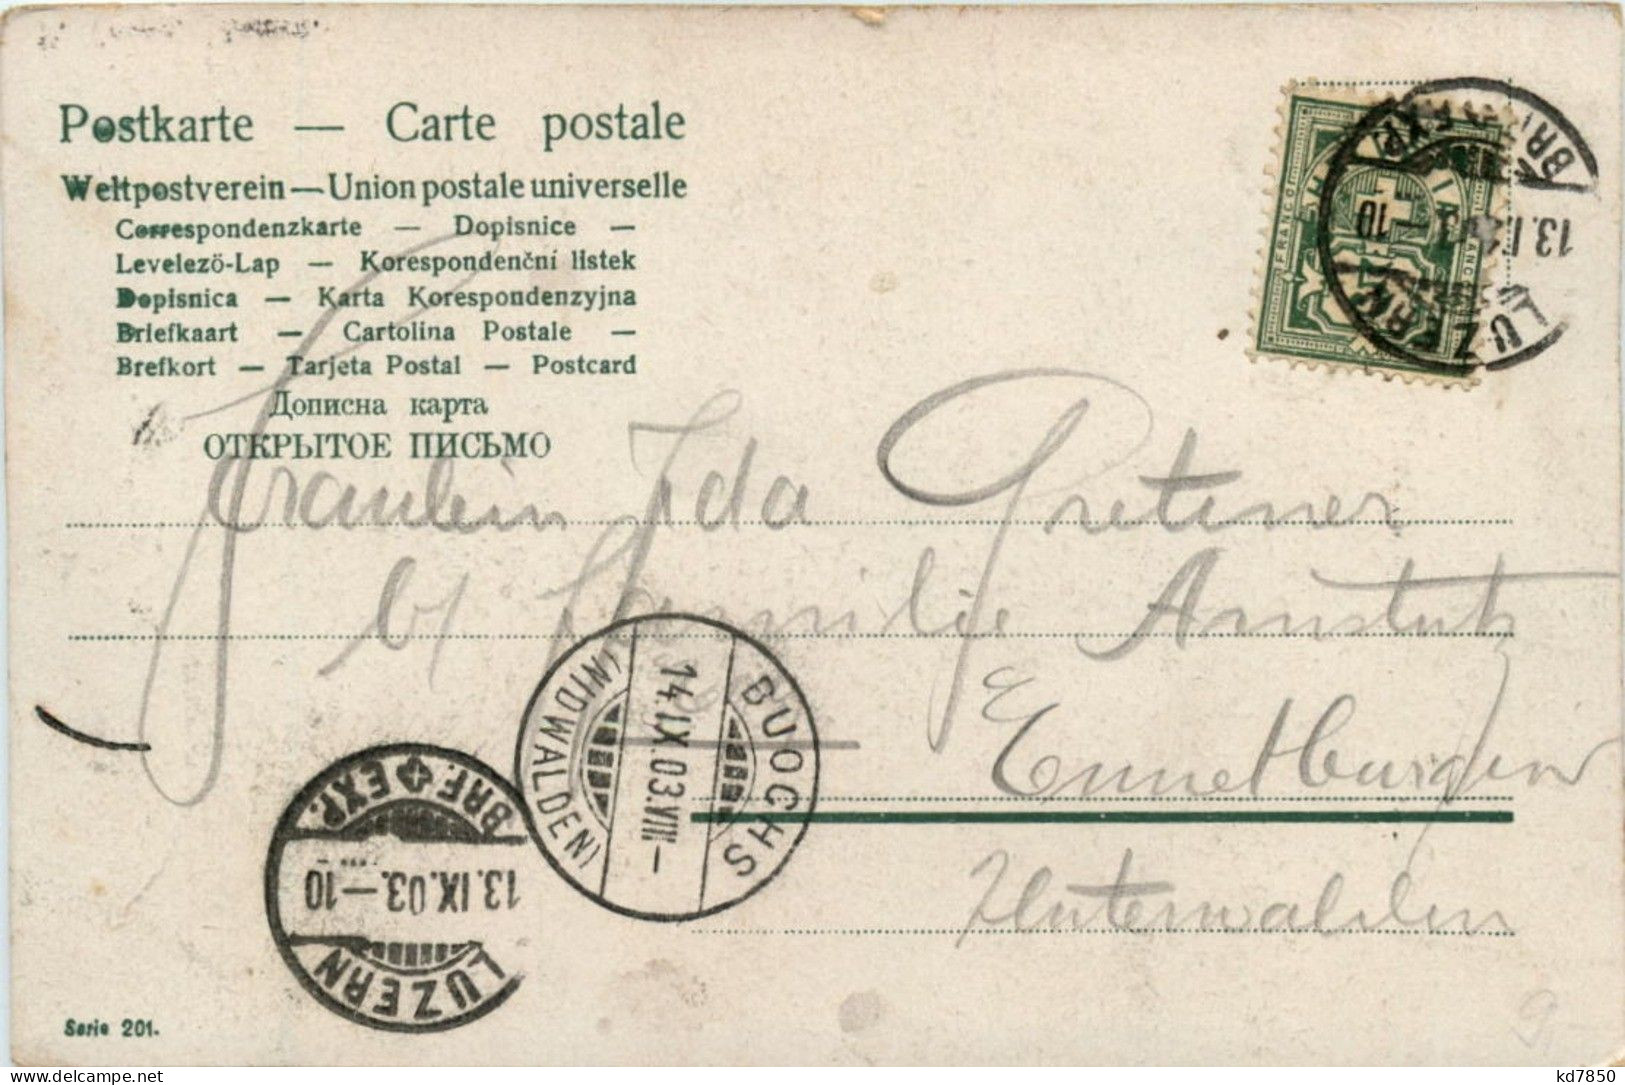 Postkarte — Carte postale
Weltpostverein — Union postale universelle
Correspondenzkarte — Dopisnice —
Levelezö-Lap — Korespondenční listek
Dopisnica — Karta Korespondenzyjna
Briefkaart — Cartolina Postale —
Brefkort — Tarjeta Postal — Postcard
Дописна карта
ОТКРЫТОЕ ПИСЬМО
FRANCO
LUZERN
BRF. EXP.
13.IX.03 –10
Fräulein Ida
b/ Familie Amstutz
Ennetbürgen
Unterwalden
BUOCHS
14.IX.03.VIII–
(NIDWALDEN)
BRF. EXP.
13.IX.03.–10
LUZERN
Serie 201.
akpool.de
kd7850